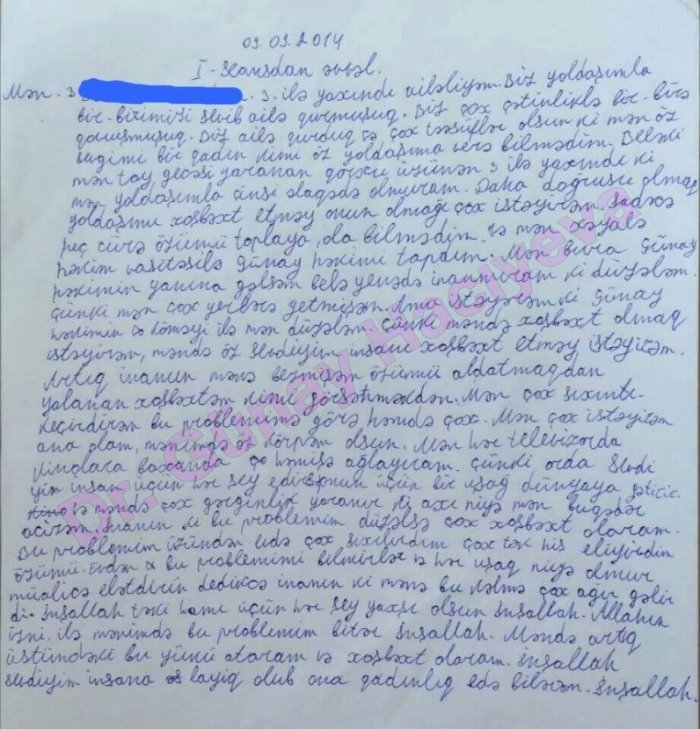 09.09.2014
I-seansdan əvvəl.
Mən 3 3-ilə yaxındı ailəliyəm. Biz yoldaşımla
bir-birimizi sevib ailə qurmuşuq. Biz çox çətinliklə bir-birə
qovuşmuşuq. Biz ailə qurduq və çox təəssüflər olsun ki mən öz
sevgimi bir qadın kimi öz yoldaşıma verə bilmədim. Bəlkə
mən toy gecəsi yaranan qorxu üzünən 3 ilə yaxındı ki
mən yoldaşımla cinsi əlaqədə olmuram. Daha doğrusu olmaq
yoldaşımı xoşbəxt etməy onun olmağı çox istəyirəm. Sadəcə
heç cürə özümü toplaya, da bilmədim. Və mən xəyalə
həkim vasitəsilə Günay həkimi tapdım. Mən bura Günay
həkimin yanına gəlsəm belə yenədə inanmıram ki düzələm
çünki mən çox yerlərə getmişəm. Ama istəyərəm ki Günay
həkimin köməyi ilə mən düzələm çünki məndə xoşbəxt olmaq
istəyirəm, məndə öz sevdiyim insanı xoşbəxt etməy istəyirəm.
Artıq inanın mənə bezmişəm özümü aldatmaqdan
yalanan xoşbəxtəm kimi görsətməkdən. Mən çox sıxıntı
keçirdirəm bu problemimə görə həmdə çox. Mən çox istəyirəm
ana olam, mənimdə öz körpəm olsun. Mən hər televizorda
kinolara baxanda həmişə ağlayıram. Çünki orda sevdi
yin insan üçün hər şey edirsən onun üçün bir uşaq dünyaya gətirir.
və məndə çox gərginlik yaranır ki axı niyə mən buqədər
acizəm. İnanın ki bu problemim düzəlsə çox xoşbəxt olaram.
Bu problemim üzündən evdə çox sıxılırdım çox tək his eliyirdim
özümü. Evdən bu problemimi bilmirlər və hər uşaq niyə olmur
müalicə elətdirin dedikcə inanın ki mənə bu kəlmə çox ağır gəlir
di. İnşallah təki hamı üçün hər şey yaxşı olsun inşallah. Allahın
izni ilə mənimdə bu problemim bitər inşallah. Məndə artıq
üstümdəki bu yükü ataram və xoşbəxt olaram. İnşallah
sevdiyim insana layiq olub ona qadınlıq edə bilərəm. İnşallah.
Dr. Günay Hacıyeva